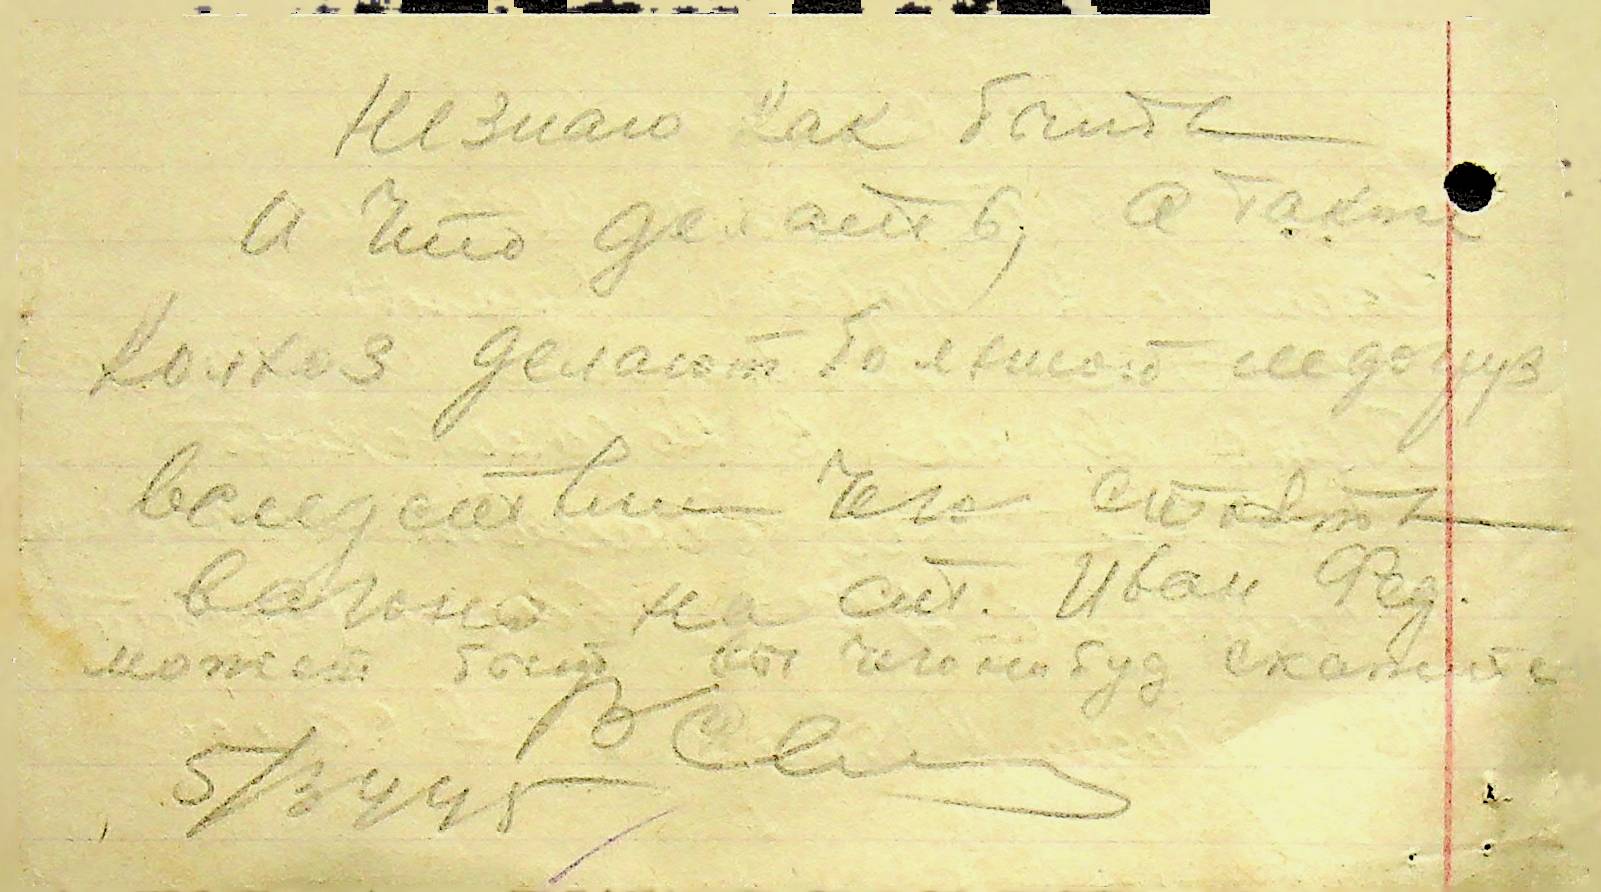 Незнаю как быть
и что делать, а также
колхоз делают большой недогруз
вследствии чего стоять
вагоно на ст. Иван Фед.
может быть вы чегонибуд скажите
5/3 445